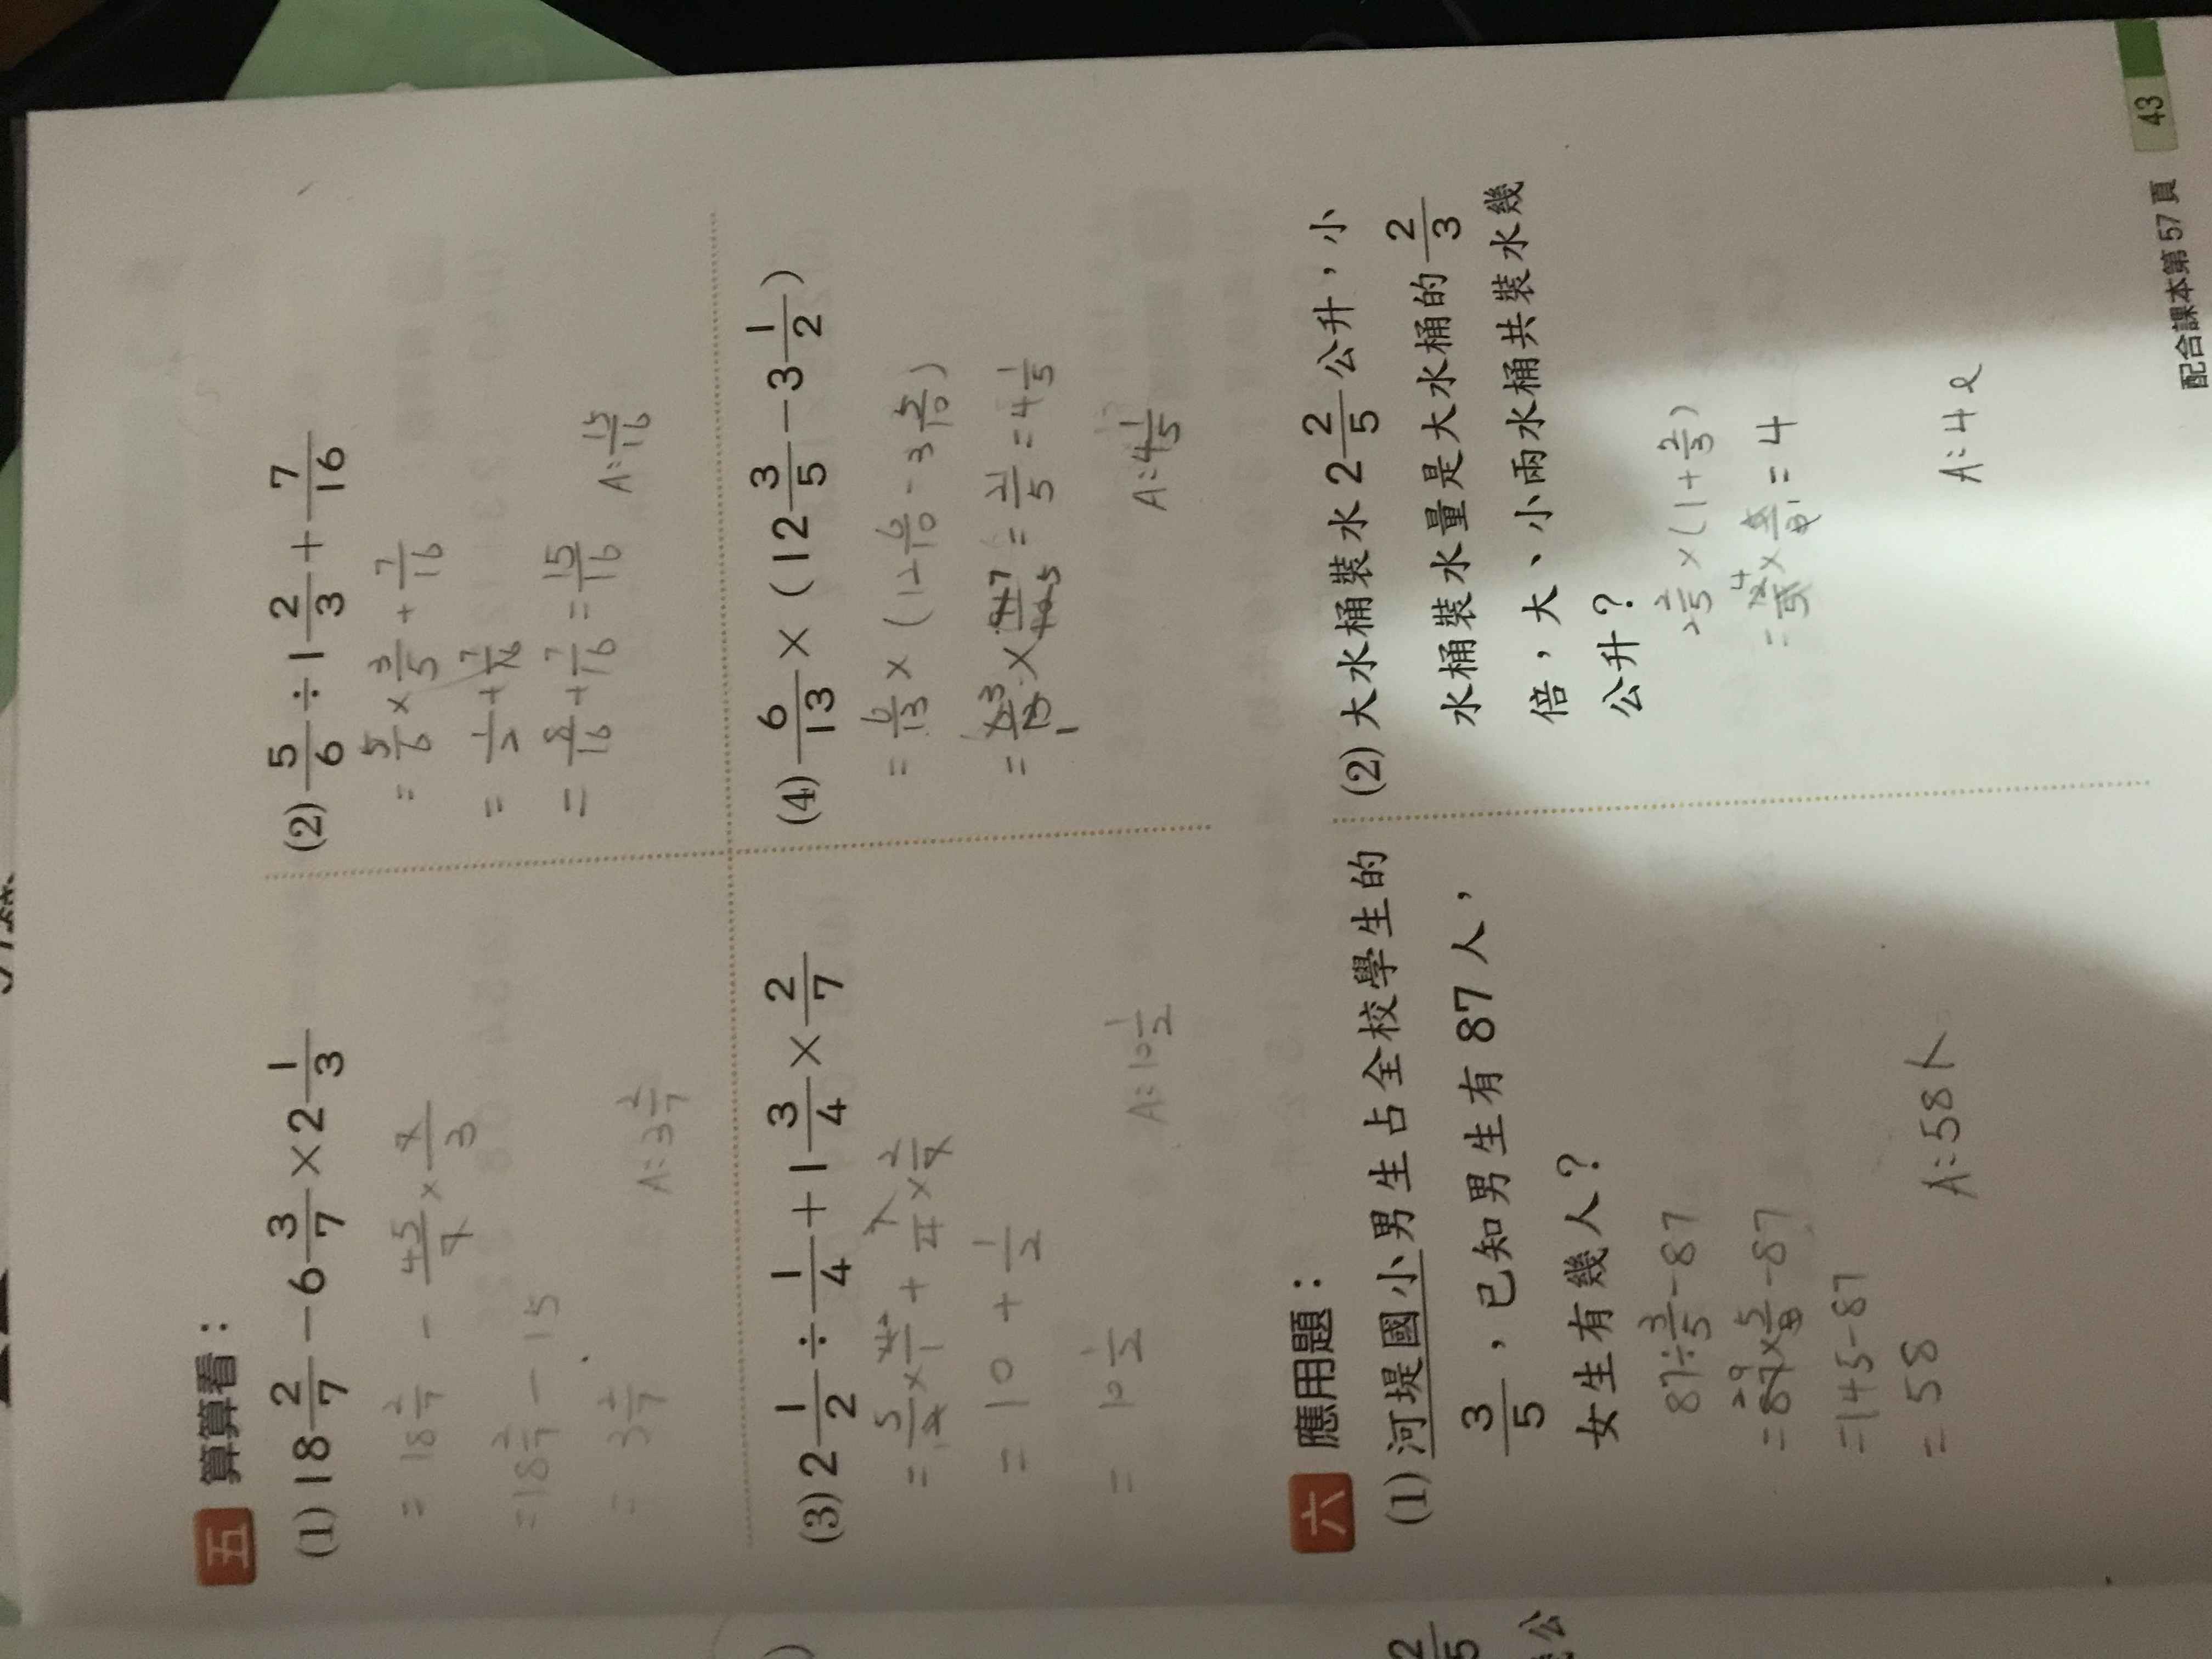 五 算算看：
(1) 18 2/7 − 6 3/7 × 2 1/3
= 18 2/7 − 45/7 × 7/3
= 18 2/7 − 15
= 3 2/7
A: 3 2/7
(2) 5/6 ÷ 1 2/3 + 7/16
= 5/6 × 3/5 + 7/16
= 1/2 + 7/16
= 8/16 + 7/16 = 15/16
A: 15/16
(3) 2 1/2 ÷ 1/4 + 1 3/4 × 2/7
= 5/2 × 4/1 + 7/4 × 2/7
= 10 + 1/2
= 10 1/2
A: 10 1/2
(4) 6/13 × ( 12 3/5 − 3 1/2 )
= 6/13 × ( 12 6/10 − 3 5/10 )
= 6/13 × 91/10 = 21/5 = 4 1/5
A: 4 1/5
六 應用題：
(1) 河堤國小男生占全校學生的
3/5，已知男生有 87 人，
女生有幾人？
87 ÷ 3/5 − 87
= 87 × 5/3 − 87
= 145 − 87
= 58
A: 58人
(2) 大水桶裝水 2 2/5 公升，小
水桶裝水量是大水桶的 2/3
倍，大、小兩水桶共裝水幾
公升？
2 2/5 × (1 + 2/3)
= 12/5 × 5/3 = 4
A: 4 ℓ
配合課本第57頁 43